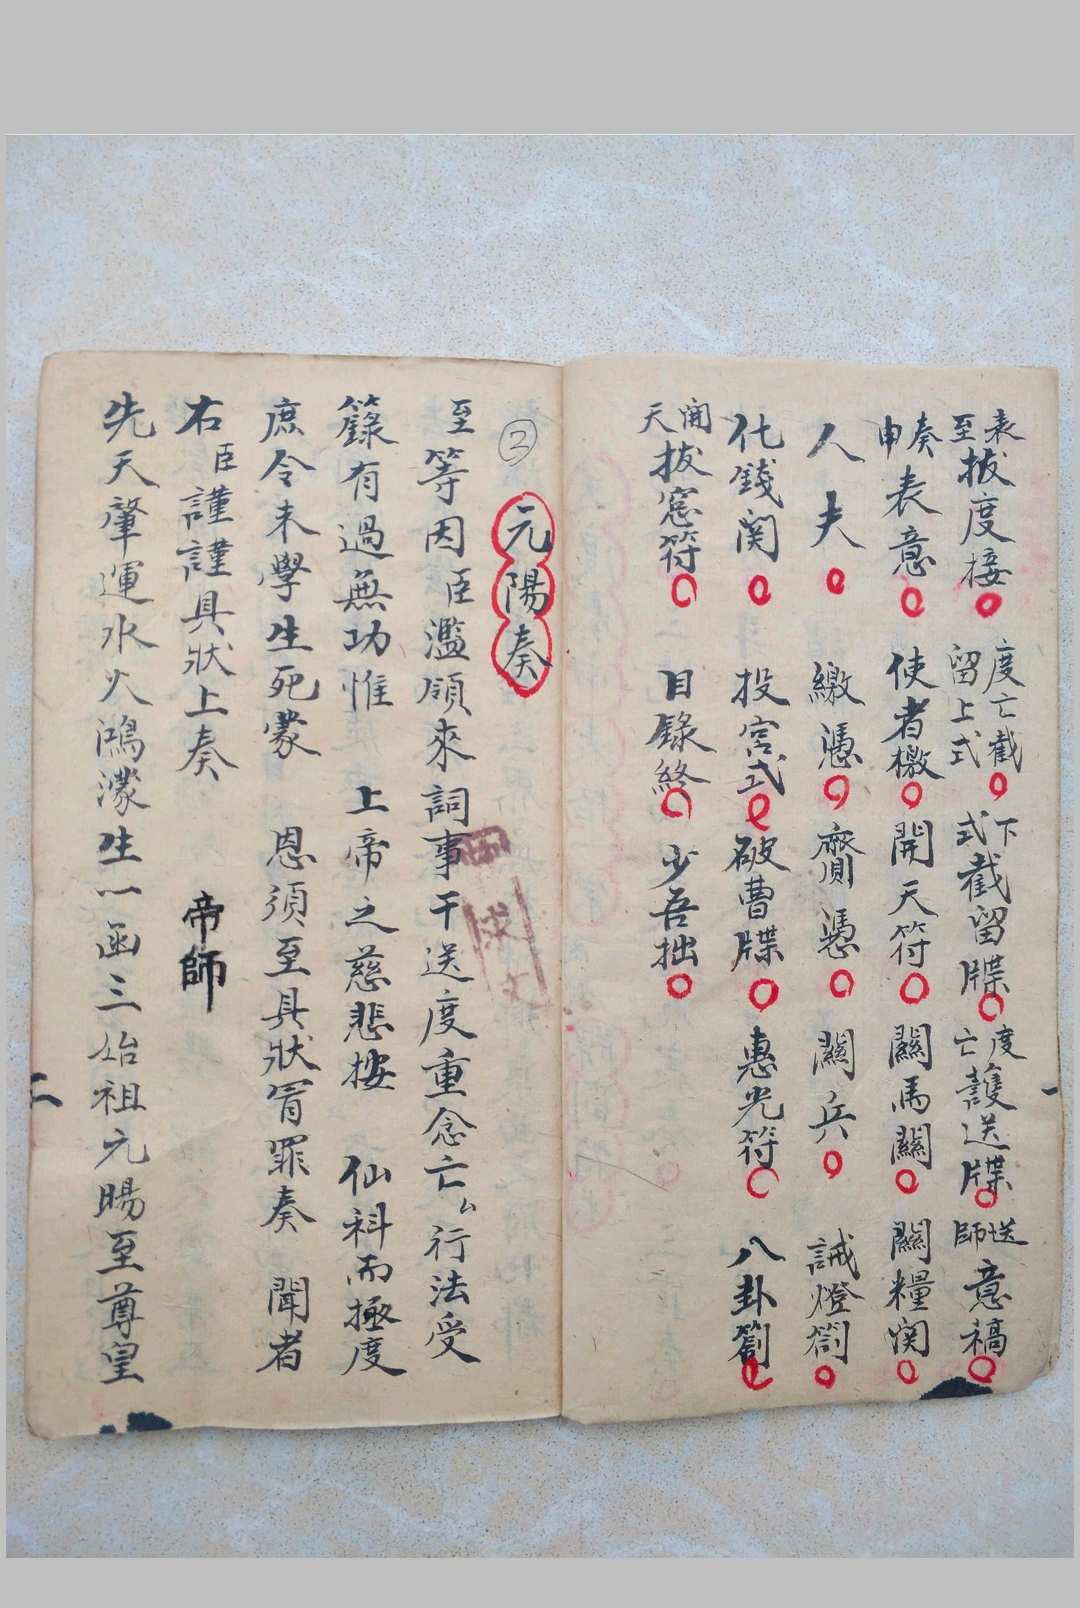 表至拔度接 度亡截留上式 下式截留牒 度亡護送牒 送師意稿
奏申表意 使者檄 開天符 關馬關 關糧関
人夫 繳憑 賫憑 關兵 誡燈劄
化錢関 投宮式 破曹牒 惠光符 八卦劄
開天拔窓符 目錄終 少吾拙
② 元陽奏
至等因臣濫領來詞事干送度重念亡厶行法受
籙有過無功惟 上帝之慈悲按 仙科而極度
庶令未學生死蒙 恩須至具狀冒罪奏 聞者
右臣謹謹具狀上奏 帝師
先天肇運水火鴻濛生一函三始祖元陽至尊皇